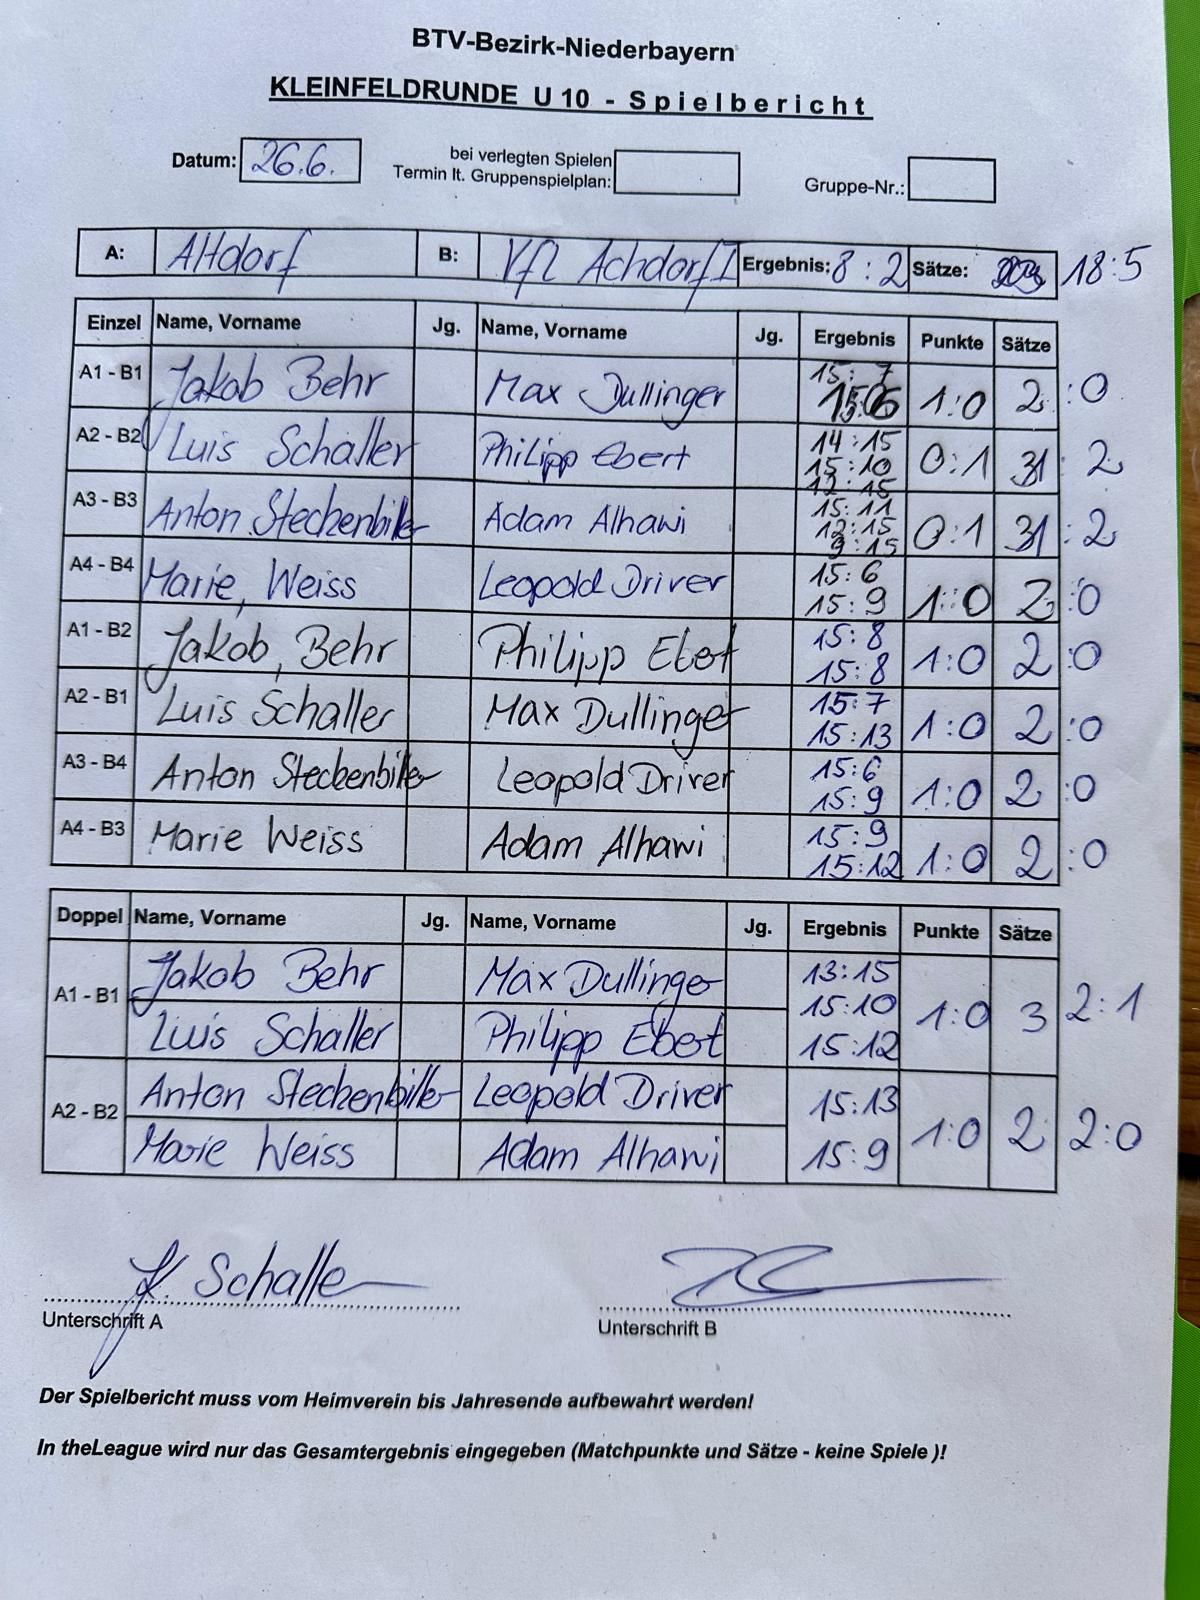 BTV-Bezirk-Niederbayern
KLEINFELDRUNDE U 10 - Spielbericht
Datum: 26.6. bei verlegten Spielen
Termin lt. Gruppenspielplan: Gruppe-Nr.:
A: Altdorf B: VfL Achdorf I Ergebnis: 8:2 Sätze: 18:5
Einzel Name, Vorname Jg. Name, Vorname Jg. Ergebnis Punkte Sätze
A1 - B1 Jakob Behr Max Dullinger 15:7 1:0 2:0
15:6
A2 - B2 Luis Schaller Philipp Ebert 14:15 0:1 1:2
15:10
12:15
A3 - B3 Anton Steckenbiller Adam Alhawi 15:11 0:1 1:2
12:15
9:15
A4 - B4 Marie, Weiss Leopold Driver 15:6 1:0 2:0
15:9
A1 - B2 Jakob, Behr Philipp Ebert 15:8 1:0 2:0
15:8
A2 - B1 Luis Schaller Max Dullinger 15:7 1:0 2:0
15:13
A3 - B4 Anton Steckenbiller Leopold Driver 15:6 1:0 2:0
15:9
A4 - B3 Marie Weiss Adam Alhawi 15:9 1:0 2:0
15:12
Doppel Name, Vorname Jg. Name, Vorname Jg. Ergebnis Punkte Sätze
A1 - B1 Jakob Behr Max Dullinger 13:15 1:0 3 2:1
15:10
Luis Schaller Philipp Ebert 15:12
A2 - B2 Anton Steckenbiller Leopold Driver 15:13 1:0 2 2:0
Marie Weiss Adam Alhawi 15:9
Schaller
Unterschrift A Unterschrift B
Der Spielbericht muss vom Heimverein bis Jahresende aufbewahrt werden!
In theLeague wird nur das Gesamtergebnis eingegeben (Matchpunkte und Sätze - keine Spiele )!